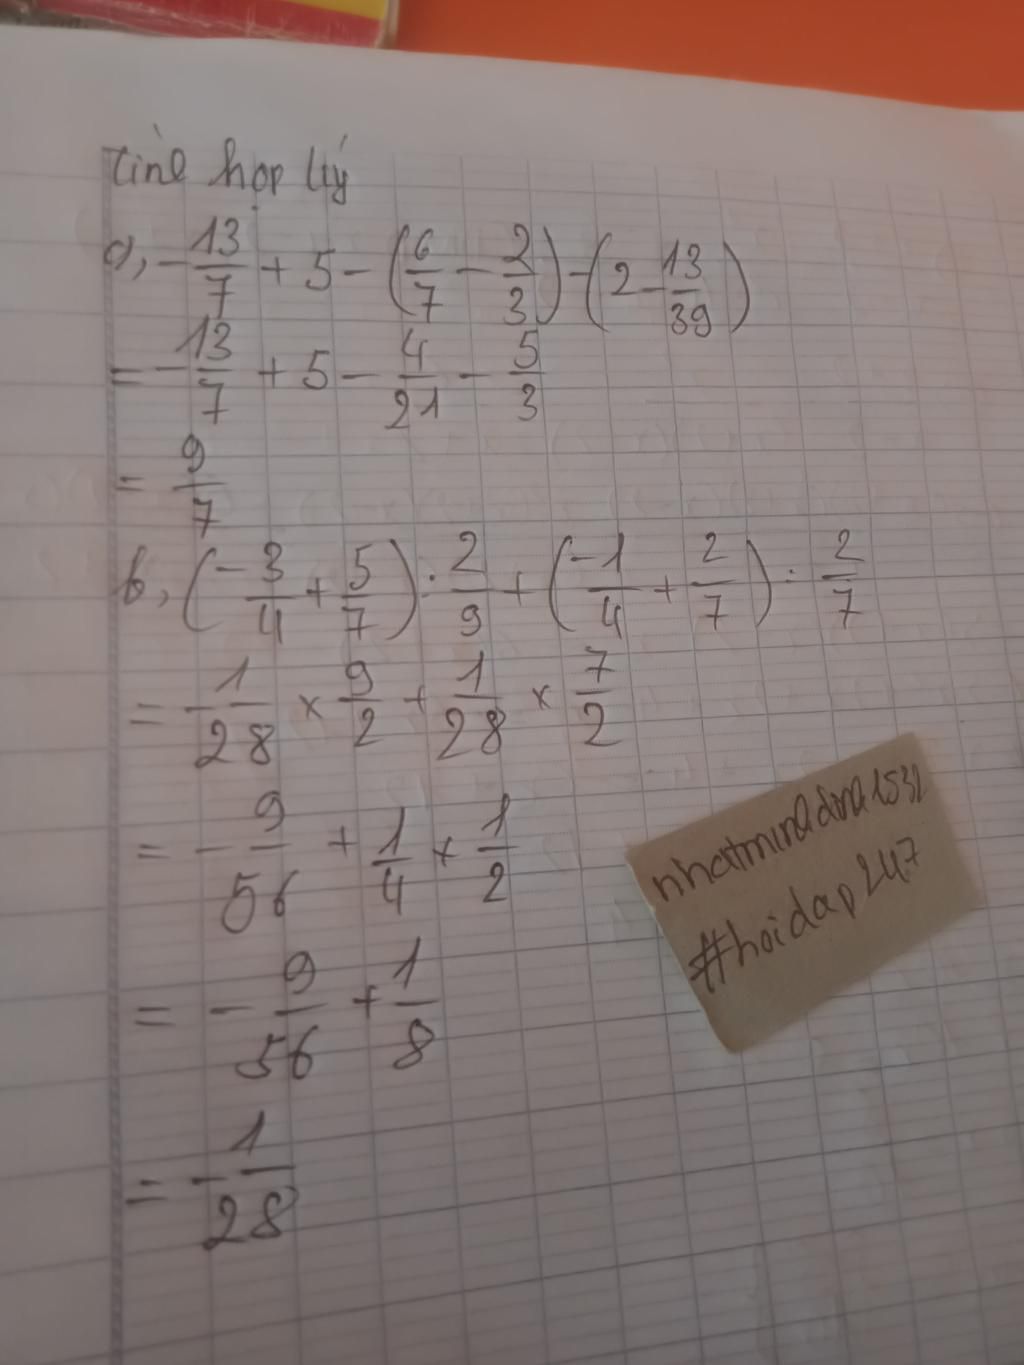 Tính hợp lý
a, -13/7 + 5 - (6/7 - 2/3) - (2 - 13/39)
= -13/7 + 5 - 4/21 - 5/3
= 9/7
b, (-3/4 + 5/7) : 2/9 + (-1/4 + 2/7) : 2/7
= -1/28 × 9/2 + 1/28 × 7/2
= -9/56 + 1/4 × 1/2
= -9/56 + 1/8
= -1/28
#hoidap247